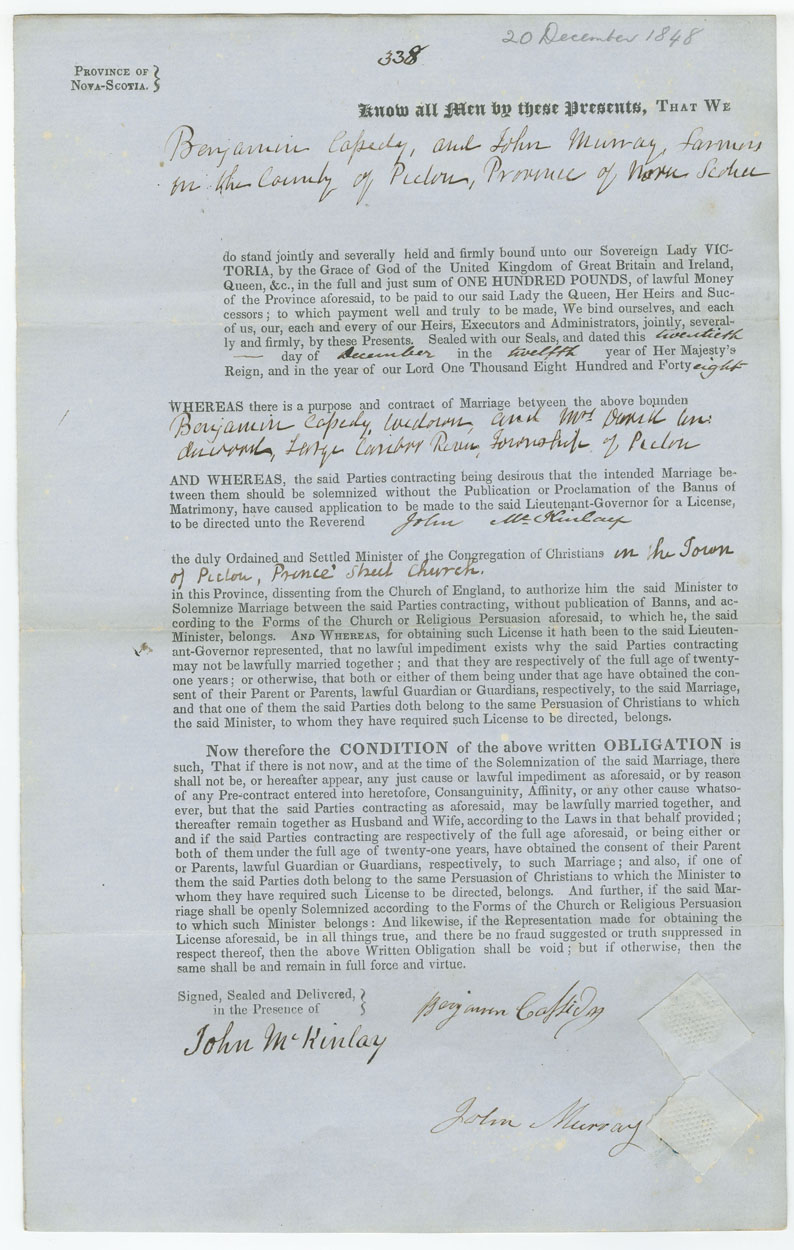 20 December 1848
338
PROVINCE OF
NOVA-SCOTIA.
Know all Men by these Presents, THAT WE
Benjamin Cassedy, and John Murray, Farmers
in the County of Pictou, Province of Nova Scotia
do stand jointly and severally held and firmly bound unto our Sovereign Lady VIC-
TORIA, by the Grace of God of the United Kingdom of Great Britain and Ireland,
Queen, &c., in the full and just sum of ONE HUNDRED POUNDS, of lawful Money
of the Province aforesaid, to be paid to our said Lady the Queen, Her Heirs and Suc-
cessors; to which payment well and truly to be made, We bind ourselves, and each
of us, our, each and every of our Heirs, Executors and Administrators, jointly, several-
ly and firmly, by these Presents. Sealed with our Seals, and dated this twentieth
— day of December in the twelfth year of Her Majesty's
Reign, and in the year of our Lord One Thousand Eight Hundred and Forty eight
WHEREAS there is a purpose and contract of Marriage between the above bounden
Benjamin Cassedy, and Mrs
Caribou River, Township of Pictou
AND WHEREAS, the said Parties contracting being desirous that the intended Marriage be-
tween them should be solemnized without the Publication or Proclamation of the Banns of
Matrimony, have caused application to be made to the said Lieutenant-Governor for a License,
to be directed unto the Reverend John McKinlay
the duly Ordained and Settled Minister of the Congregation of Christians in the Town
of Pictou, Prince Street Church.
in this Province, dissenting from the Church of England, to authorize him the said Minister to
Solemnize Marriage between the said Parties contracting, without publication of Banns, and ac-
cording to the Forms of the Church or Religious Persuasion aforesaid, to which he, the said
Minister, belongs. AND WHEREAS, for obtaining such License it hath been to the said Lieuten-
ant-Governor represented, that no lawful impediment exists why the said Parties contracting
may not be lawfully married together; and that they are respectively of the full age of twenty-
one years; or otherwise, that both or either of them being under that age have obtained the con-
sent of their Parent or Parents, lawful Guardian or Guardians, respectively, to the said Marriage,
and that one of them the said Parties doth belong to the same Persuasion of Christians to which
the said Minister, to whom they have required such License to be directed, belongs.
Now therefore the CONDITION of the above written OBLIGATION is
such, That if there is not now, and at the time of the Solemnization of the said Marriage, there
shall not be, or hereafter appear, any just cause or lawful impediment as aforesaid, or by reason
of any Pre-contract entered into heretofore, Consanguinity, Affinity, or any other cause whatso-
ever, but that the said Parties contracting as aforesaid, may be lawfully married together, and
thereafter remain together as Husband and Wife, according to the Laws in that behalf provided;
and if the said Parties contracting are respectively of the full age aforesaid, or being either or
both of them under the full age of twenty-one years, have obtained the consent of their Parent
or Parents, lawful Guardian or Guardians, respectively, to such Marriage; and also, if one of
them the said Parties doth belong to the same Persuasion of Christians to which the Minister to
whom they have required such License to be directed, belongs. And further, if the said Mar-
riage shall be openly Solemnized according to the Forms of the Church or Religious Persuasion
to which such Minister belongs: And likewise, if the Representation made for obtaining the
License aforesaid, be in all things true, and there be no fraud suggested or truth suppressed in
respect thereof, then the above Written Obligation shall be void; but if otherwise, then the
same shall be and remain in full force and virtue.
Signed, Sealed and Delivered,
in the Presence of
Benjamin Cassidy
John McKinlay
John Murray